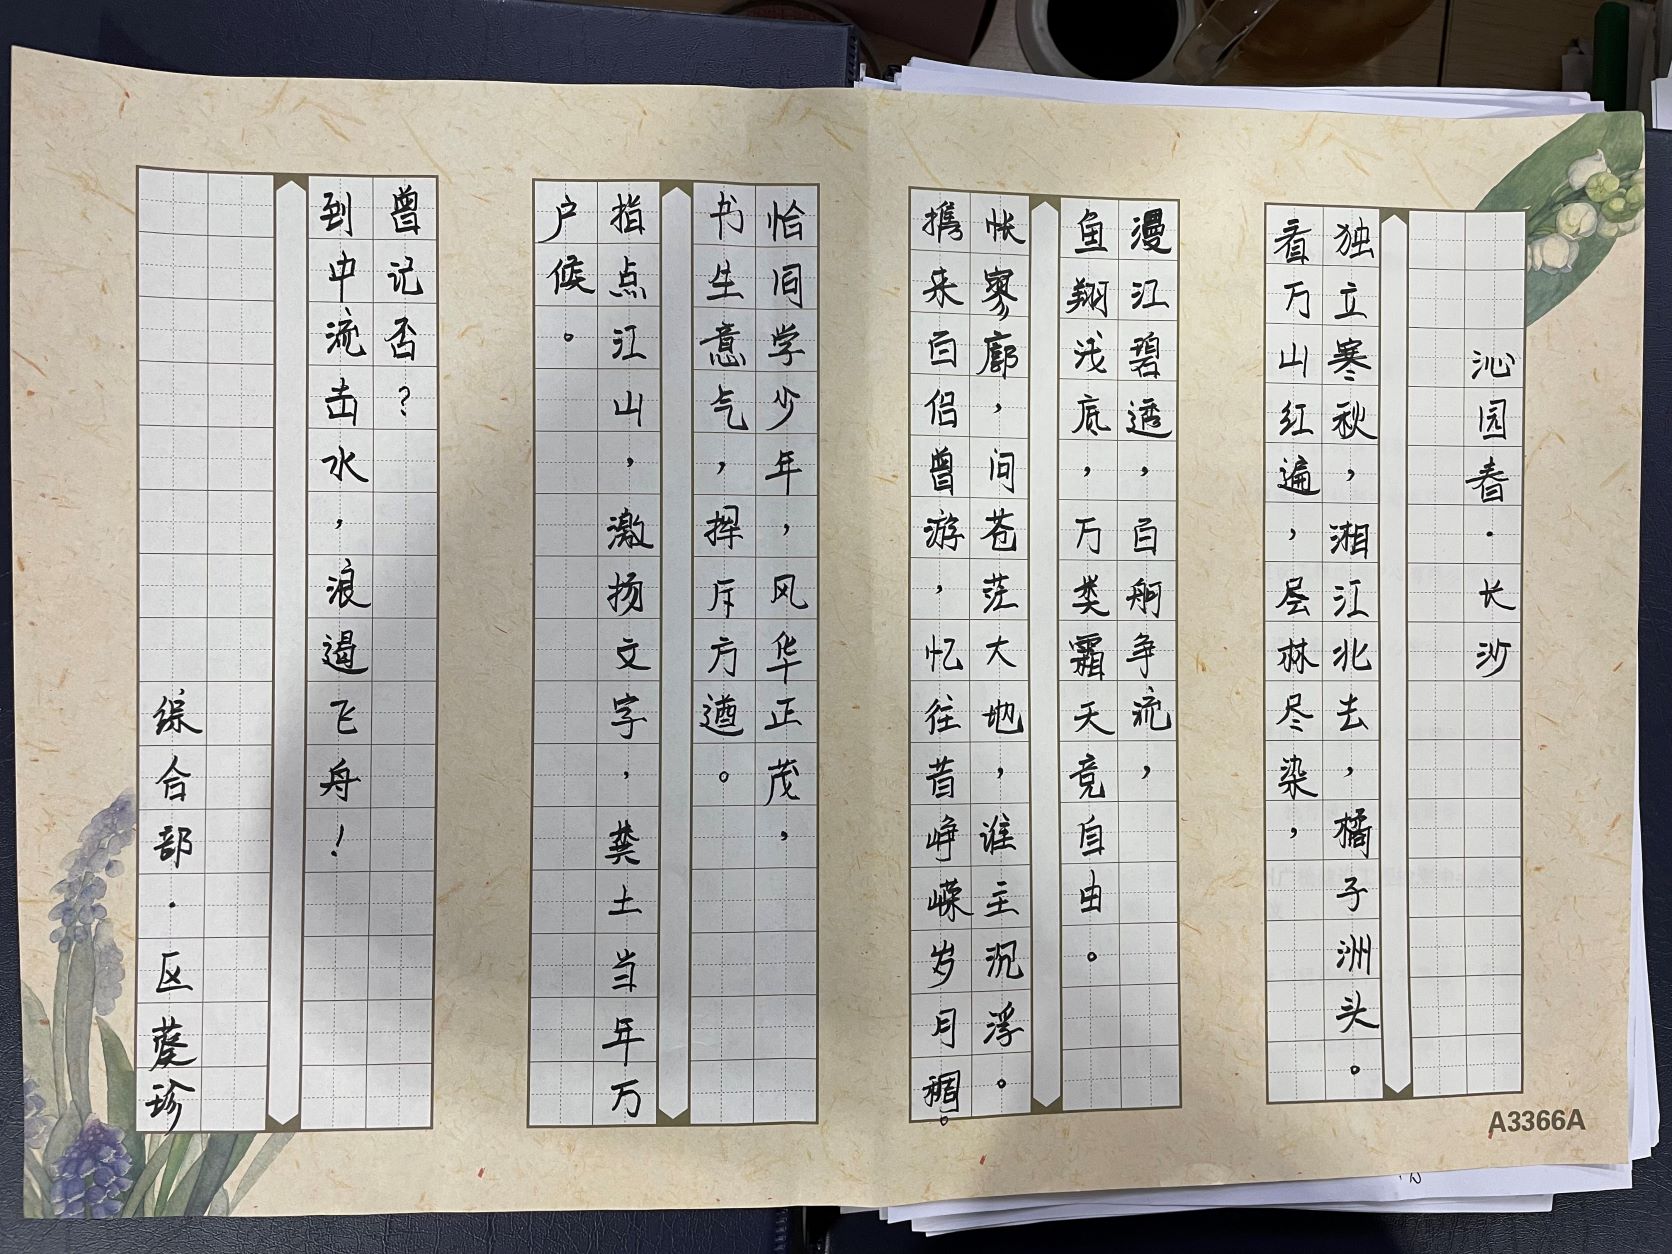 沁园春·长沙
独立寒秋，湘江北去，橘子洲头。
看万山红遍，层林尽染，
漫江碧透，百舸争流，
鱼翔浅底，万类霜天竞自由。
怅寥廓，问苍茫大地，谁主沉浮。
携来百侣曾游，忆往昔峥嵘岁月稠。
恰同学少年，风华正茂，
书生意气，挥斥方遒。
指点江山，激扬文字，粪土当年万
户候。
曾记否？
到中流击水，浪遏飞舟！
综合部·区珍
A3366A